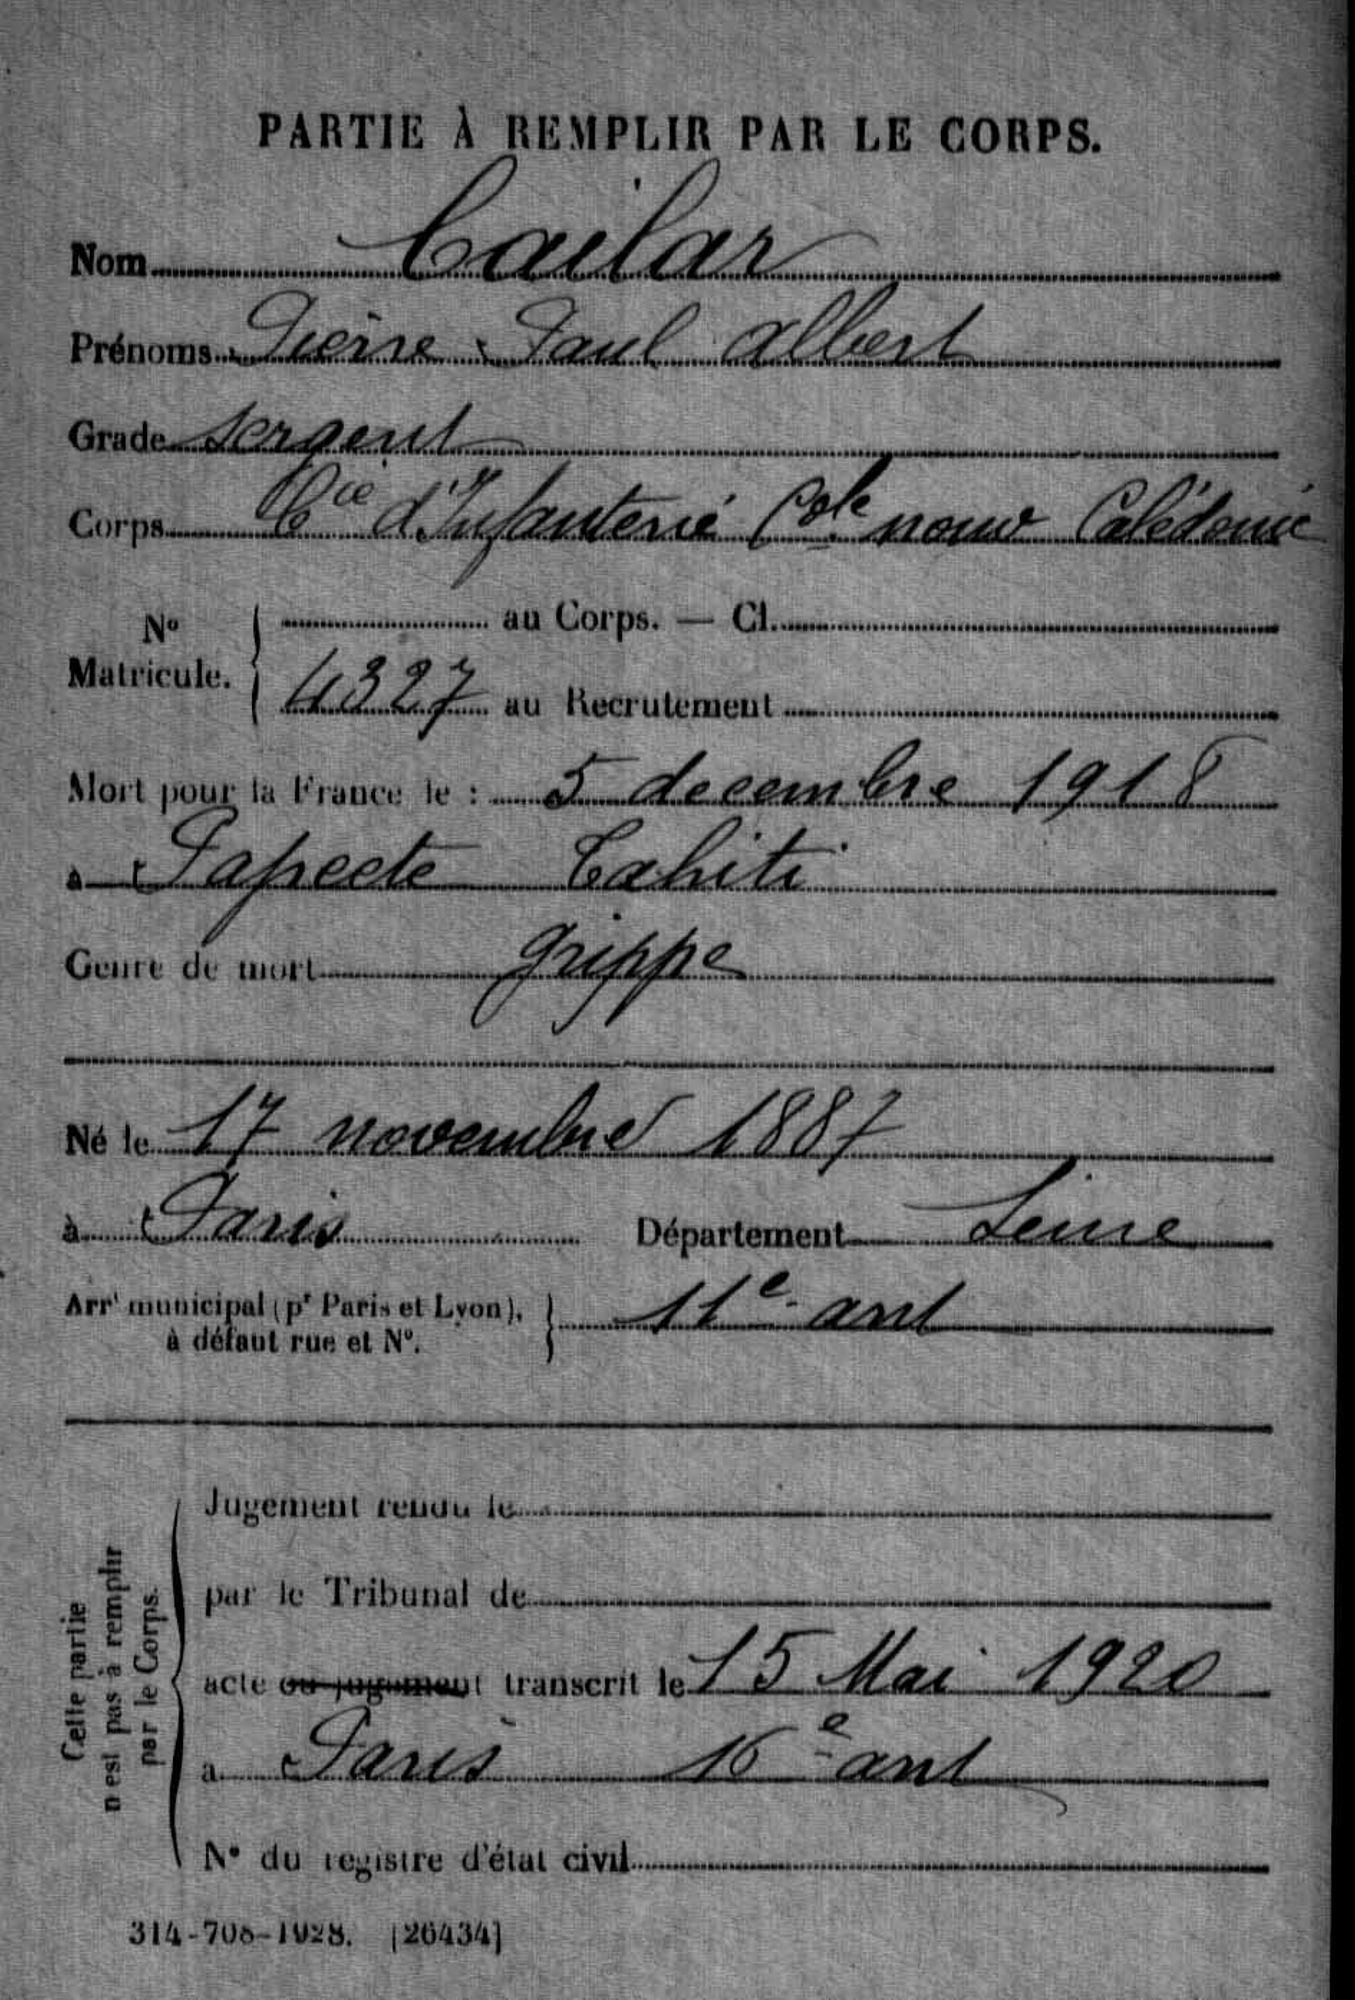 PARTIE À REMPLIR PAR LE CORPS.
Nom Cailar
Prénoms Pierre Paul Albert
Grade Sergent
Corps Cie d'Infanterie Cole nouv Calédonie
No Matricule. au Corps. — Cl.
4327 au Recrutement
Mort pour la France le : 5 decembre 1918
à Papeete Tahiti
Genre de mort grippe
Né le 17 novembre 1887
à Paris Département Seine
Arrt municipal (pr Paris et Lyon), à défaut rue et No. 11e arrt
Cette partie n'est pas à remplir par le Corps.
Jugement rendu le
par le Tribunal de
acte ou jugement transcrit le 15 Mai 1920
à Paris 16e arrt
No du registre d'état civil
314-708-1928. [26434]